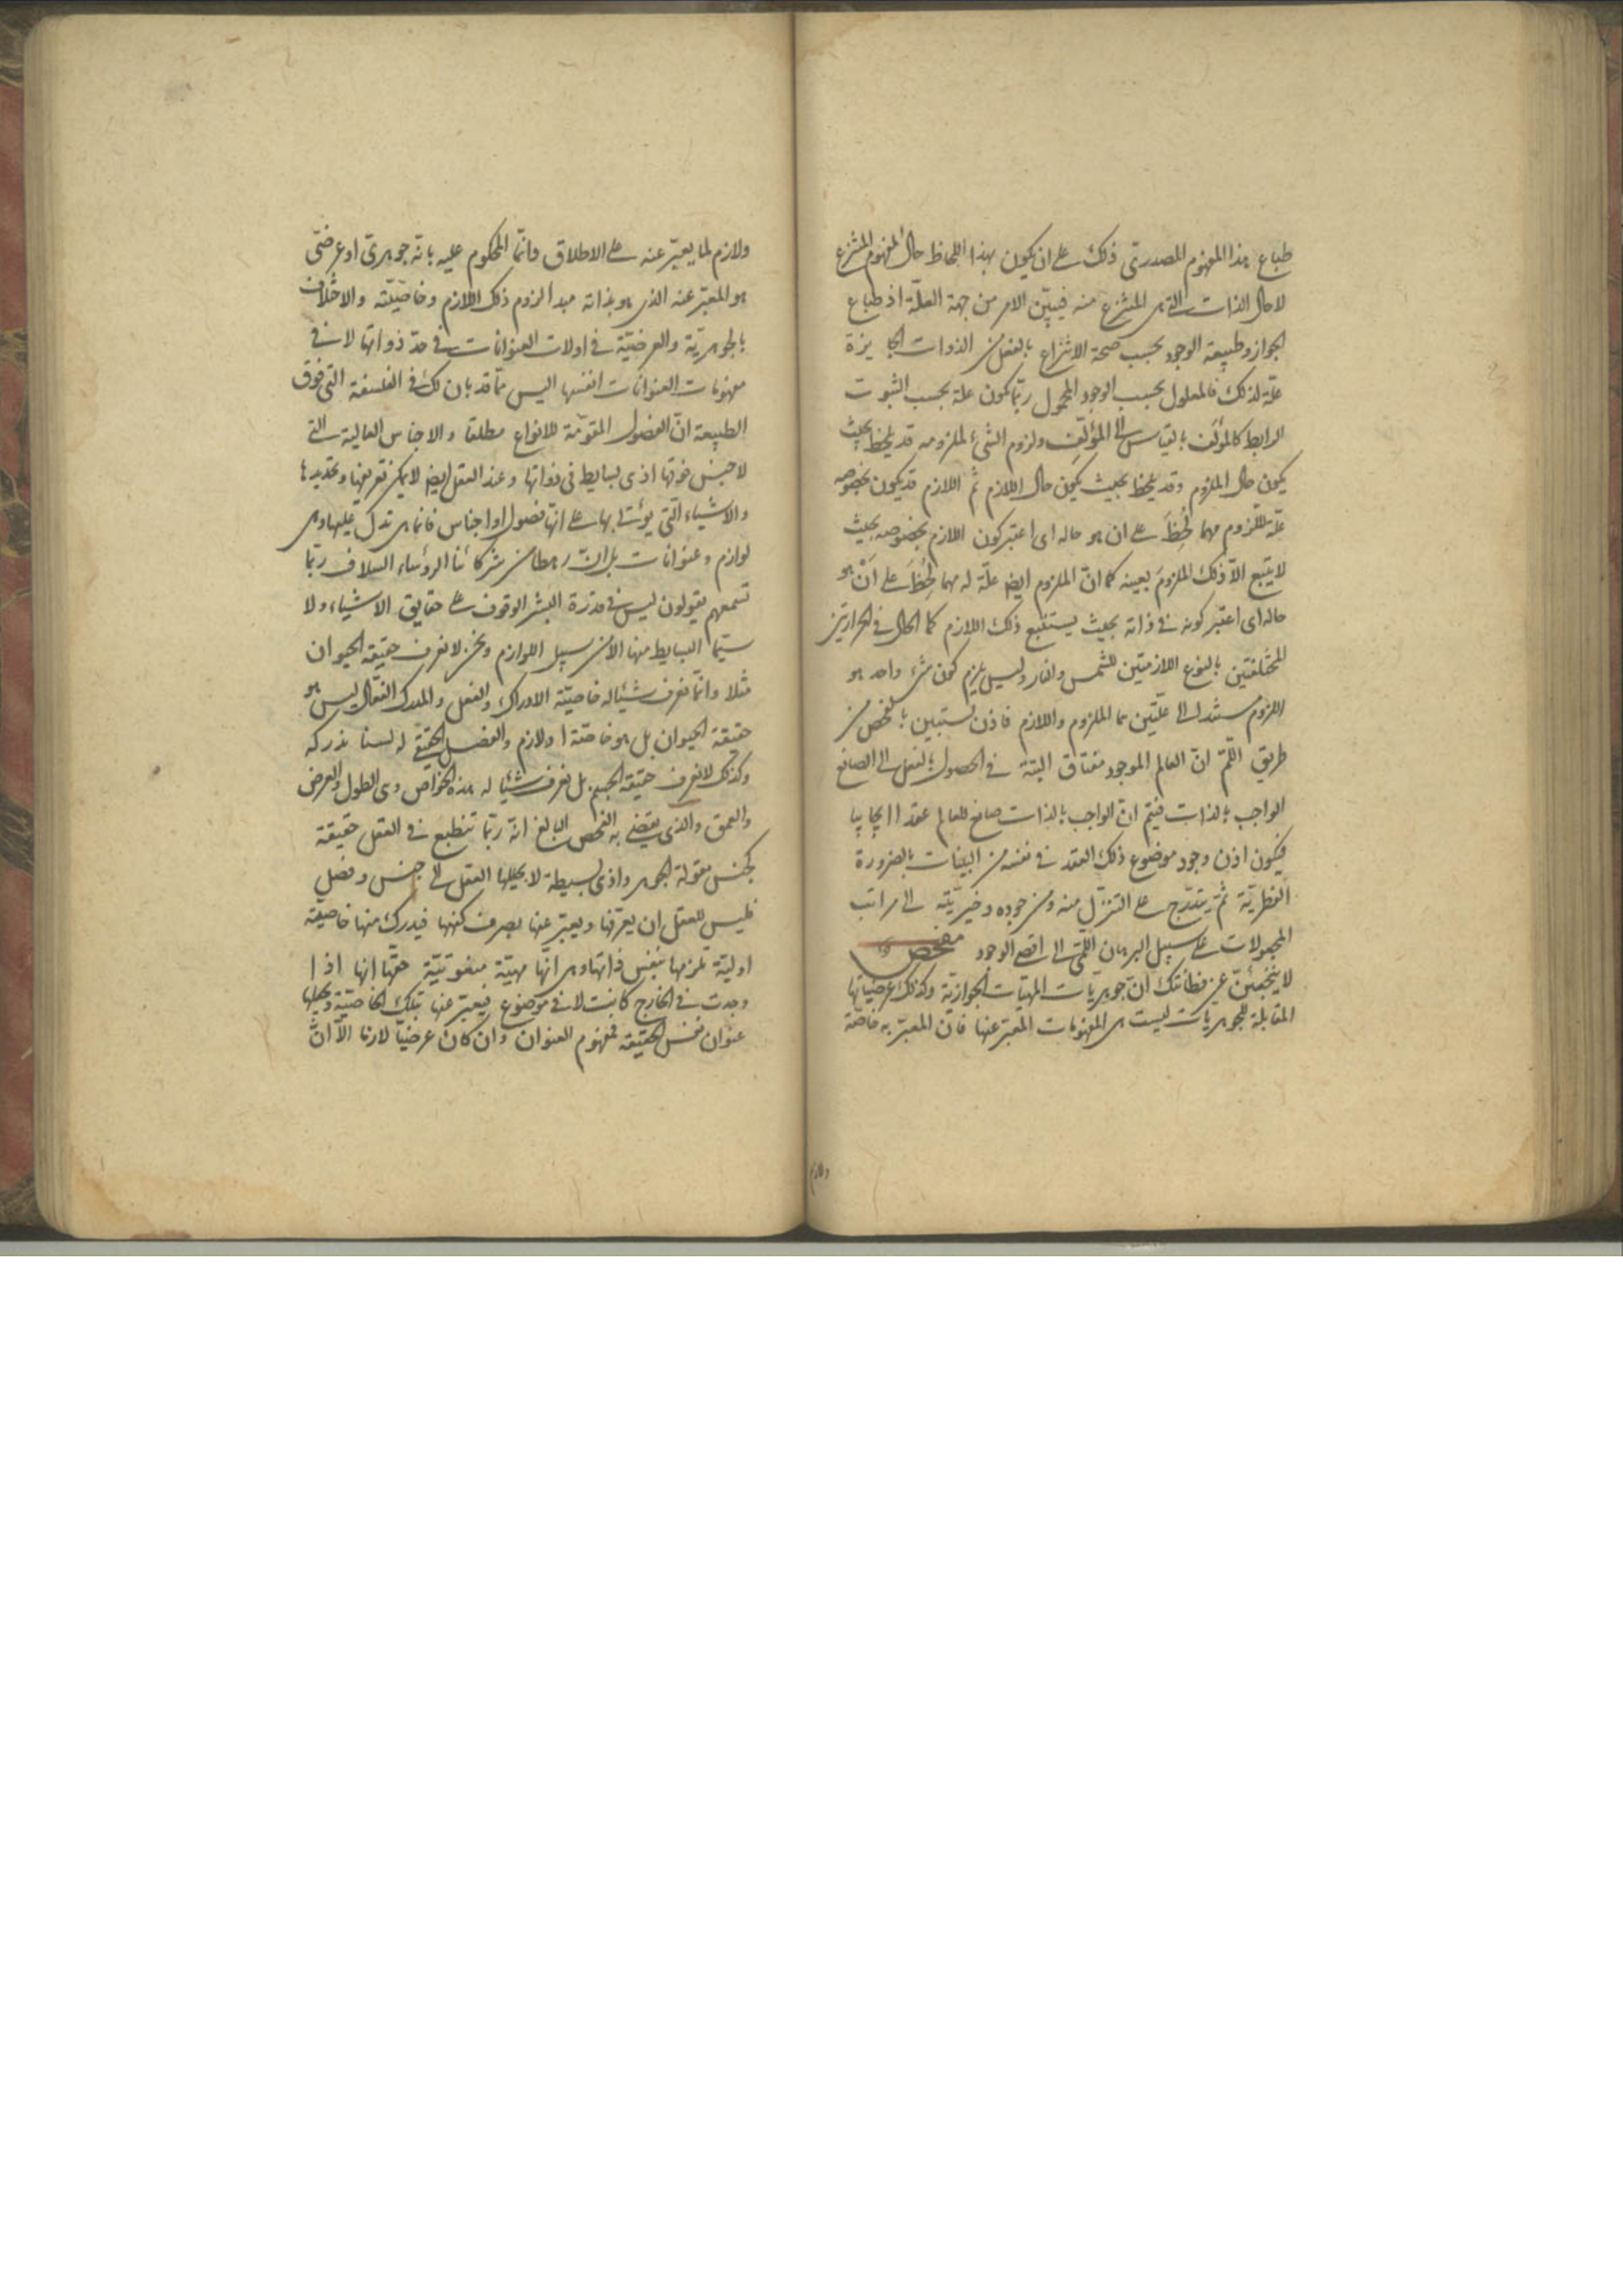 طباع هذا المفهوم المصدرتى ذلك على ان يكون بهذا اللحاظ حال المفهوم المنتزع
لا حال الذات التى هى المنتزع منه فيبيّن الامر من جهة العلّة اذ طباع
الجواز وطبيعة الوجود بحسب صحة الانتزاع بالفعل من الذوات الجايزة
علّة لذلك فالمعلول بحسب الوجود المحمول ربّما يكون علة بحسب الثبوت
الرابط كالمؤلَف بالقياس الى المؤلِّف ولزوم الشئ لملزومه قد يلحظ بحيث
يكون حال الملزوم وقد يلحظ بحيث يكون حال اللازم ثم اللازم قد يكون بخصوصه
علّة للّزوم مهما لُحِظَ على ان هو حاله اى اعتبر كون اللازم بخصوصه بحيث
لا يتبع الّا ذلك الملزومَ بعينه كما انّ الملزوم ايضا علّة له مهما لُحِظَ على اَنْ هو
حاله اى اعتبر كونه فى ذاته بحيث يستتبع ذلك اللازم كما الحال فى الحرارتين
المختلفتين بالنوع اللازمتين للشمس والنار وليس يلزم كون شئ واحد هو
اللزوم مستندا الى علّتين هما الملزوم واللازم فاذن تستبين بالفحص من
طريق اللّم انّ العالم الموجود مفتاق البتة فى الحصول بالفعل الى الصانع
الواجب بالذات فيتم انّ الواجب بالذات صانع للعالم عقدا ايجابيا
فيكون اذن وجود موضوع ذلك العقد فى نفسه من البينات بالضرورة
النظريّة ثم يتدّرج على التنزّل منه ومن جوده وخيريّته الى مراتب
المجعولات على سبيل البرهان اللّمّى الى اقصى الوجود مفحص
لا يتخمّنّنّ عن فطانتك انّ جوهريات المهيّات الجوازيّة وكذلك عرضيّاتها
المقابلة للجوهريات ليست هى المفهومات المعبّر عنها فانّ المعبّر به خاصّة
ولازم
ولازم لما يعبّر عنه على الاطلاق وانّما المحكوم عليه بانّه جوهرىّ او عرضىّ
هو المعبّر عنه الذى هو بذاته مبدأ لزوم ذلك اللازم وخاصّيّته والاختلاف
بالجوهريّة والعرضيّة فى اولات العنوانات فى حدّ ذواتها لا فى
مفهومات العنوانات انفسها اليس ممّا قد بان لك فى الفلسفة التى فوق
الطبيعة انّ الفصول المقوّمة للانواع مطلقا والاجناس العالية التى
لا جنس فوقها اذ هى بسايط فى ذواتها وعند العقل ايضا لا يمكن تعريفها وتحديدها
والاشياء الّتى يؤتى بها على انّها فصول او اجناس فانما هى تدل عليها وهى
لوازم وعنوانات بل انّ رهطا من شركائنا الرؤساء السلاف ربّما
تسمعهم يقولون ليس فى قدرة البشر الوقوف على حقايق الاشياء ولا
سيّما البسايط منها الا من سبيل اللوازم ونحن لا نعرف حقيقة الحيوان
مثلا وانّما نعرف شيئا له خاصيّة الادراك والفعل والمدرك الفعّال ليس هو
حقيقة الحيوان بل هو خاصّة او لازم والفصل الحقيقى له لسنا ندركه
وكذلك لا نعرف حقيقة الجسم بل نعرف شيئا له هذه الخواصّ وهى الطول والعرض
والعمق والذى يقضى به الفحص البالغ انّه ربّما تنطبع فى العقل حقيقة
كجنس مقولة الجوهر واذ هى بسيطة لا يحيلها العقل الى جنس وفصل
فليس للعقل ان يعرفها ويعبّر عنها بصرف كنهها فيدرك منها خاصيّة
اوليّة تلزمها بنفس ذاتها وهى انّها مهيّة منعوتيّة حقّها انها اذا
وجدت فى الخارج كانت لا فى موضوع فيعبّر عنها بتلك الخاصيّة ويجعلها
عنوان نفس الحقيقة فمفهوم العنوان وان كان عرضيّا لازما الّا انّ